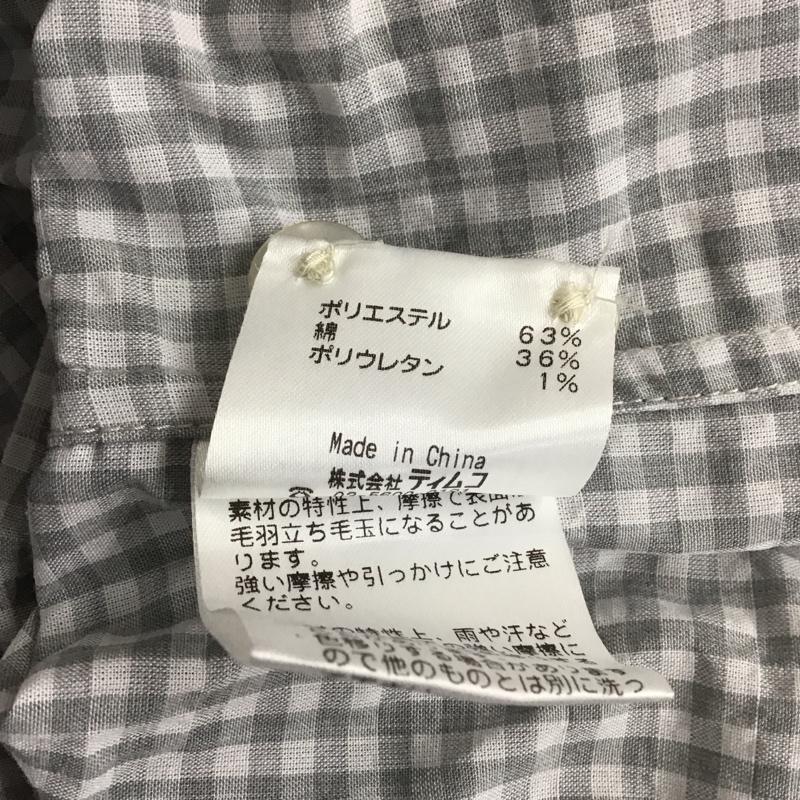 ポリエステル 63%
綿 36%
ポリウレタン 1%
Made in China
株式会社 ティムコ
素材の特性上、摩擦で表面に
毛羽立ち毛玉になることがあ
ります。
強い摩擦や引っかけにご注意
ください。
の特性上、雨や汗など
の強い摩擦に
色移りする場合があります
ので他のものとは別に洗っ